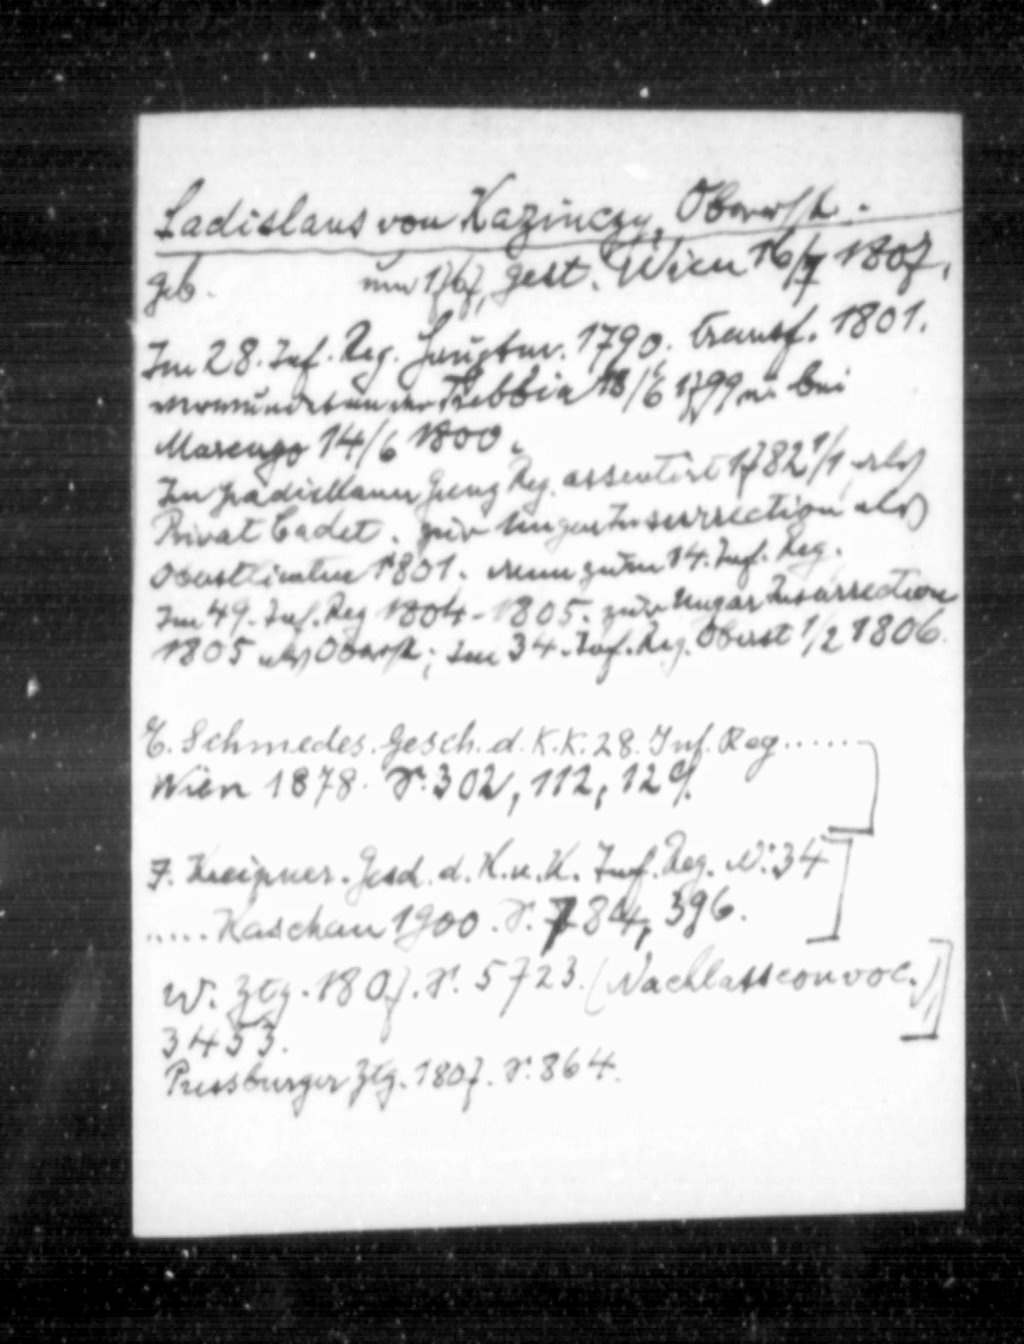 Ladislaus von Kazinczy, Oberst.
geb. um 1767, gest. Wien 16/7 1807.
Im 28. Inf. Reg. Hauptm. 1790. transf. 1801.
verwundet an der Trebbia 18/6 1799 u. bei
Marengo 14/6 1800.
Im Gradiskaner Grenz Reg. assentirt 1782 1/1 als
Privat Cadet. zur Ungar Insurrection als
Oberstlieutn 1801. dann zum 14. Inf. Reg.
Im 49. Inf. Reg 1804-1805. zur Ungar Insurrection
1805 als Oberst; im 34. Inf. Reg. Oberst 1/2 1806.
E. Schmedes. Gesch. d. K. K. 28. Inf. Reg......
Wien 1878. S. 302, 112, 129.
F. Kreipner. Gesch. d. K. u. K. Inf. Reg. N: 34
..... Kaschau 1900. S. 784, 396.
W. Ztg. 1807. S. 5723. (Nachlassconvoc.)
3453.
Pressburger Ztg. 1807. S. 864.